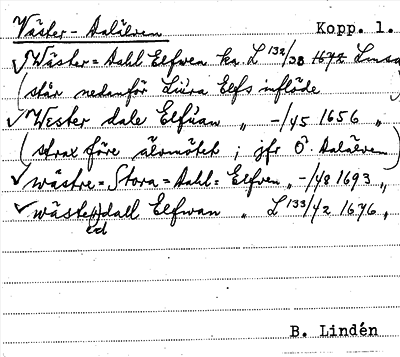 Väster-Dalälven Kopp. l.
✓ Wäster=Dahl Elfwen ka L 132/38 1672 Lmsa
(står nedanför Liura Elfs inflöde
✓ Wester dale Elfuan " -/45 1656 "
(strax före älvmötet; jfr Ö. Dalälven)
✓ wästre=Stora=Dahl=Elfven " -/48 1693 "
✓ wäste dall Elfwan " L 133/42 1676 "
ed
B. Lindén